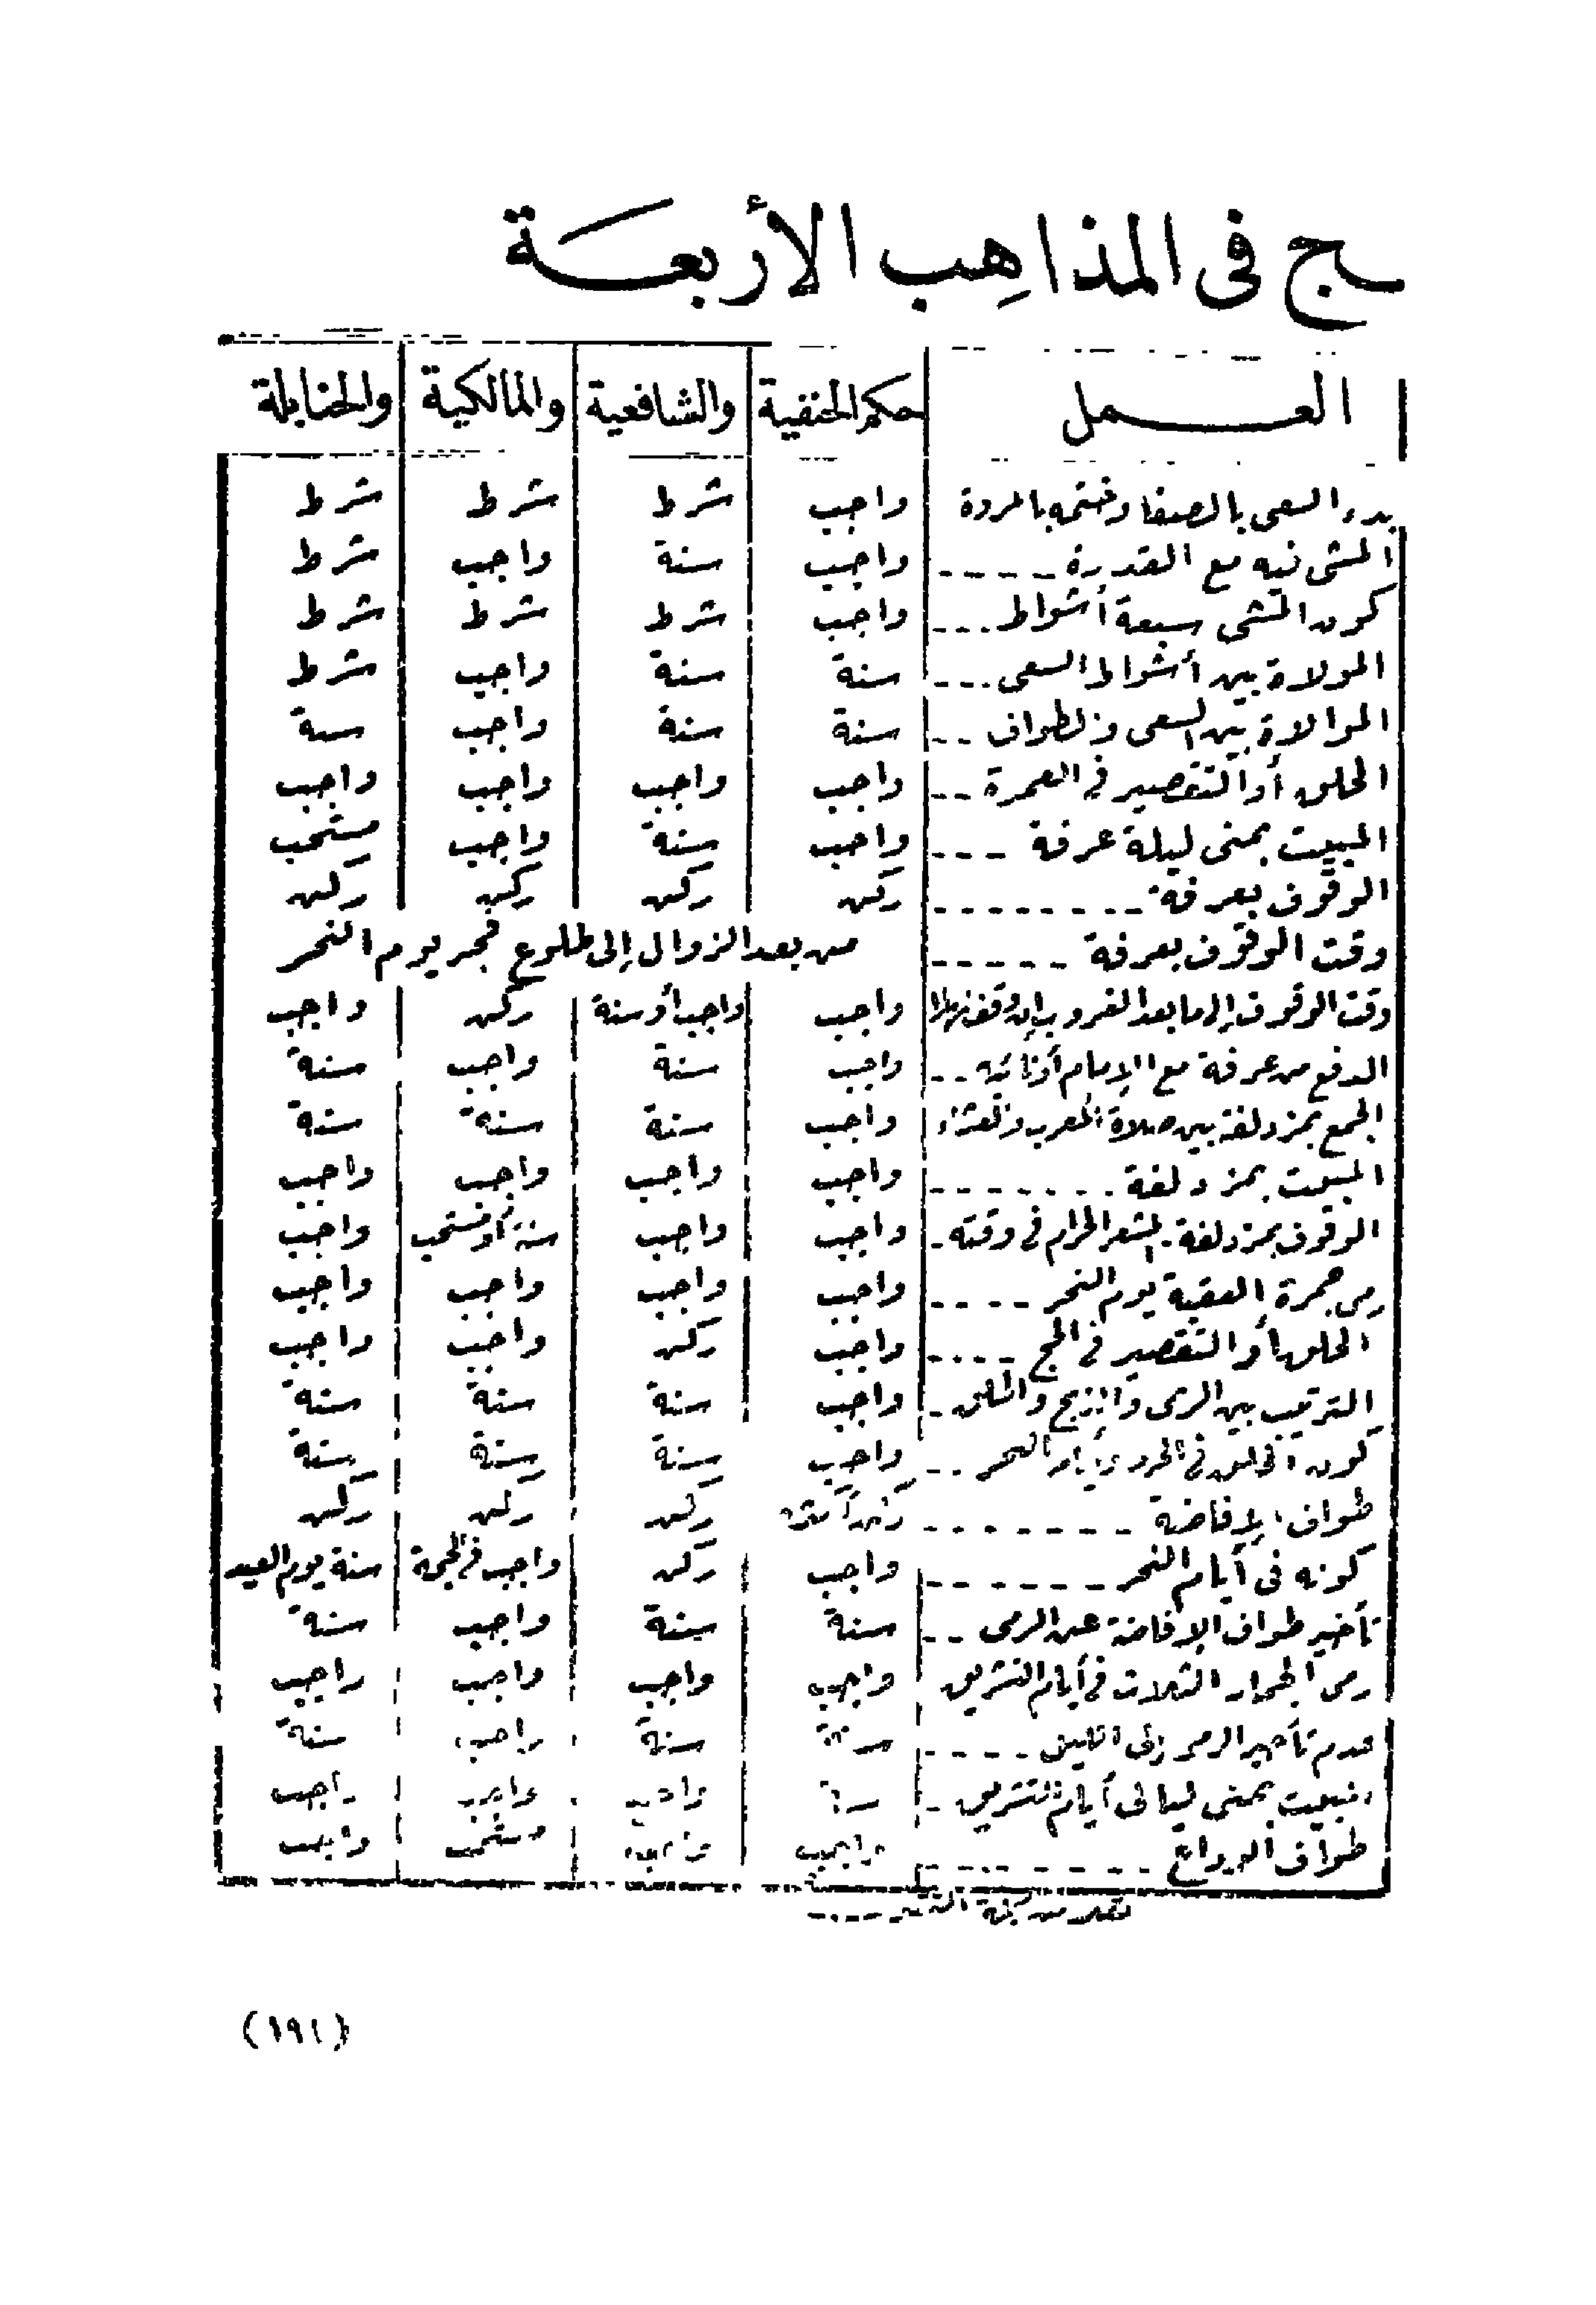 ـج فى المذاهب الأربعـة
العمل حكم الحنفية والشافعية والمالكية والحنابلة
بدء السعى بالصفا وختمه بالمروة واجب شرط شرط شرط
المشى فيه مع القدرة ----- واجب سنة واجب شرط
كون المشى سبعة أشواط ... واجب شرط شرط شرط
المولاة بين أشواط السعى ... سنة سنة واجب شرط
الموالاة بين السعى والطواف -- سنة سنة واجب سنة
الحلق أو التقصير فى العمرة -- واجب واجب واجب واجب
المبيت بمنى ليلة عرفة --- واجب سنة واجب مستحب
الوقوف بعرفة -------- ركن ركن ركن ركن
وقت الوقوف بعرفة ----- من بعد الزوال إلى طلوع فجر يوم النحر
وقت الوقوف إلى ما بعد الغروب إن وقف نهارا واجب واجب أو سنة ركن واجب
الدفع من عرفة مع الإمام أو نائبه -- واجب سنة واجب سنة
الجمع بمزدلفة بين صلاة المغرب والعشاء واجب سنة سنة سنة
المبيت بمزدلفة ------- واجب واجب واجب واجب
الوقوف بمزدلفة. المشعر الحرام فى وقته - واجب واجب سنة أو مستحب واجب
رمى جمرة العقبة يوم النحر ---- واجب واجب واجب واجب
الحلق أو التقصير فى الحج ---- واجب ركن واجب واجب
الترتيب بين الرمى والذبح والحلق - واجب سنة سنة سنة
كون الحلق فى الحرم وأيام النحر -- واجب سنة سنة سنة
طواف الإفاضة ------- ركن ركن ركن
كونه فى أيام النحر ------- واجب ركن واجب فى الحجة سنة يوم العيد
تأخير طواف الإفاضة عن الرمى -- سنة سنة واجب سنة
رمى الجمار الثلاث فى أيام التشريق واجب واجب واجب واجب
عدم تأخير الرمى إلى الليل ---- سنة سنة واجب سنة
المبيت بمنى ليالى أيام التشريق - سنة واجب واجب واجب
طواف الوداع -------- واجب واجب مستحب واجب
(١٩١)